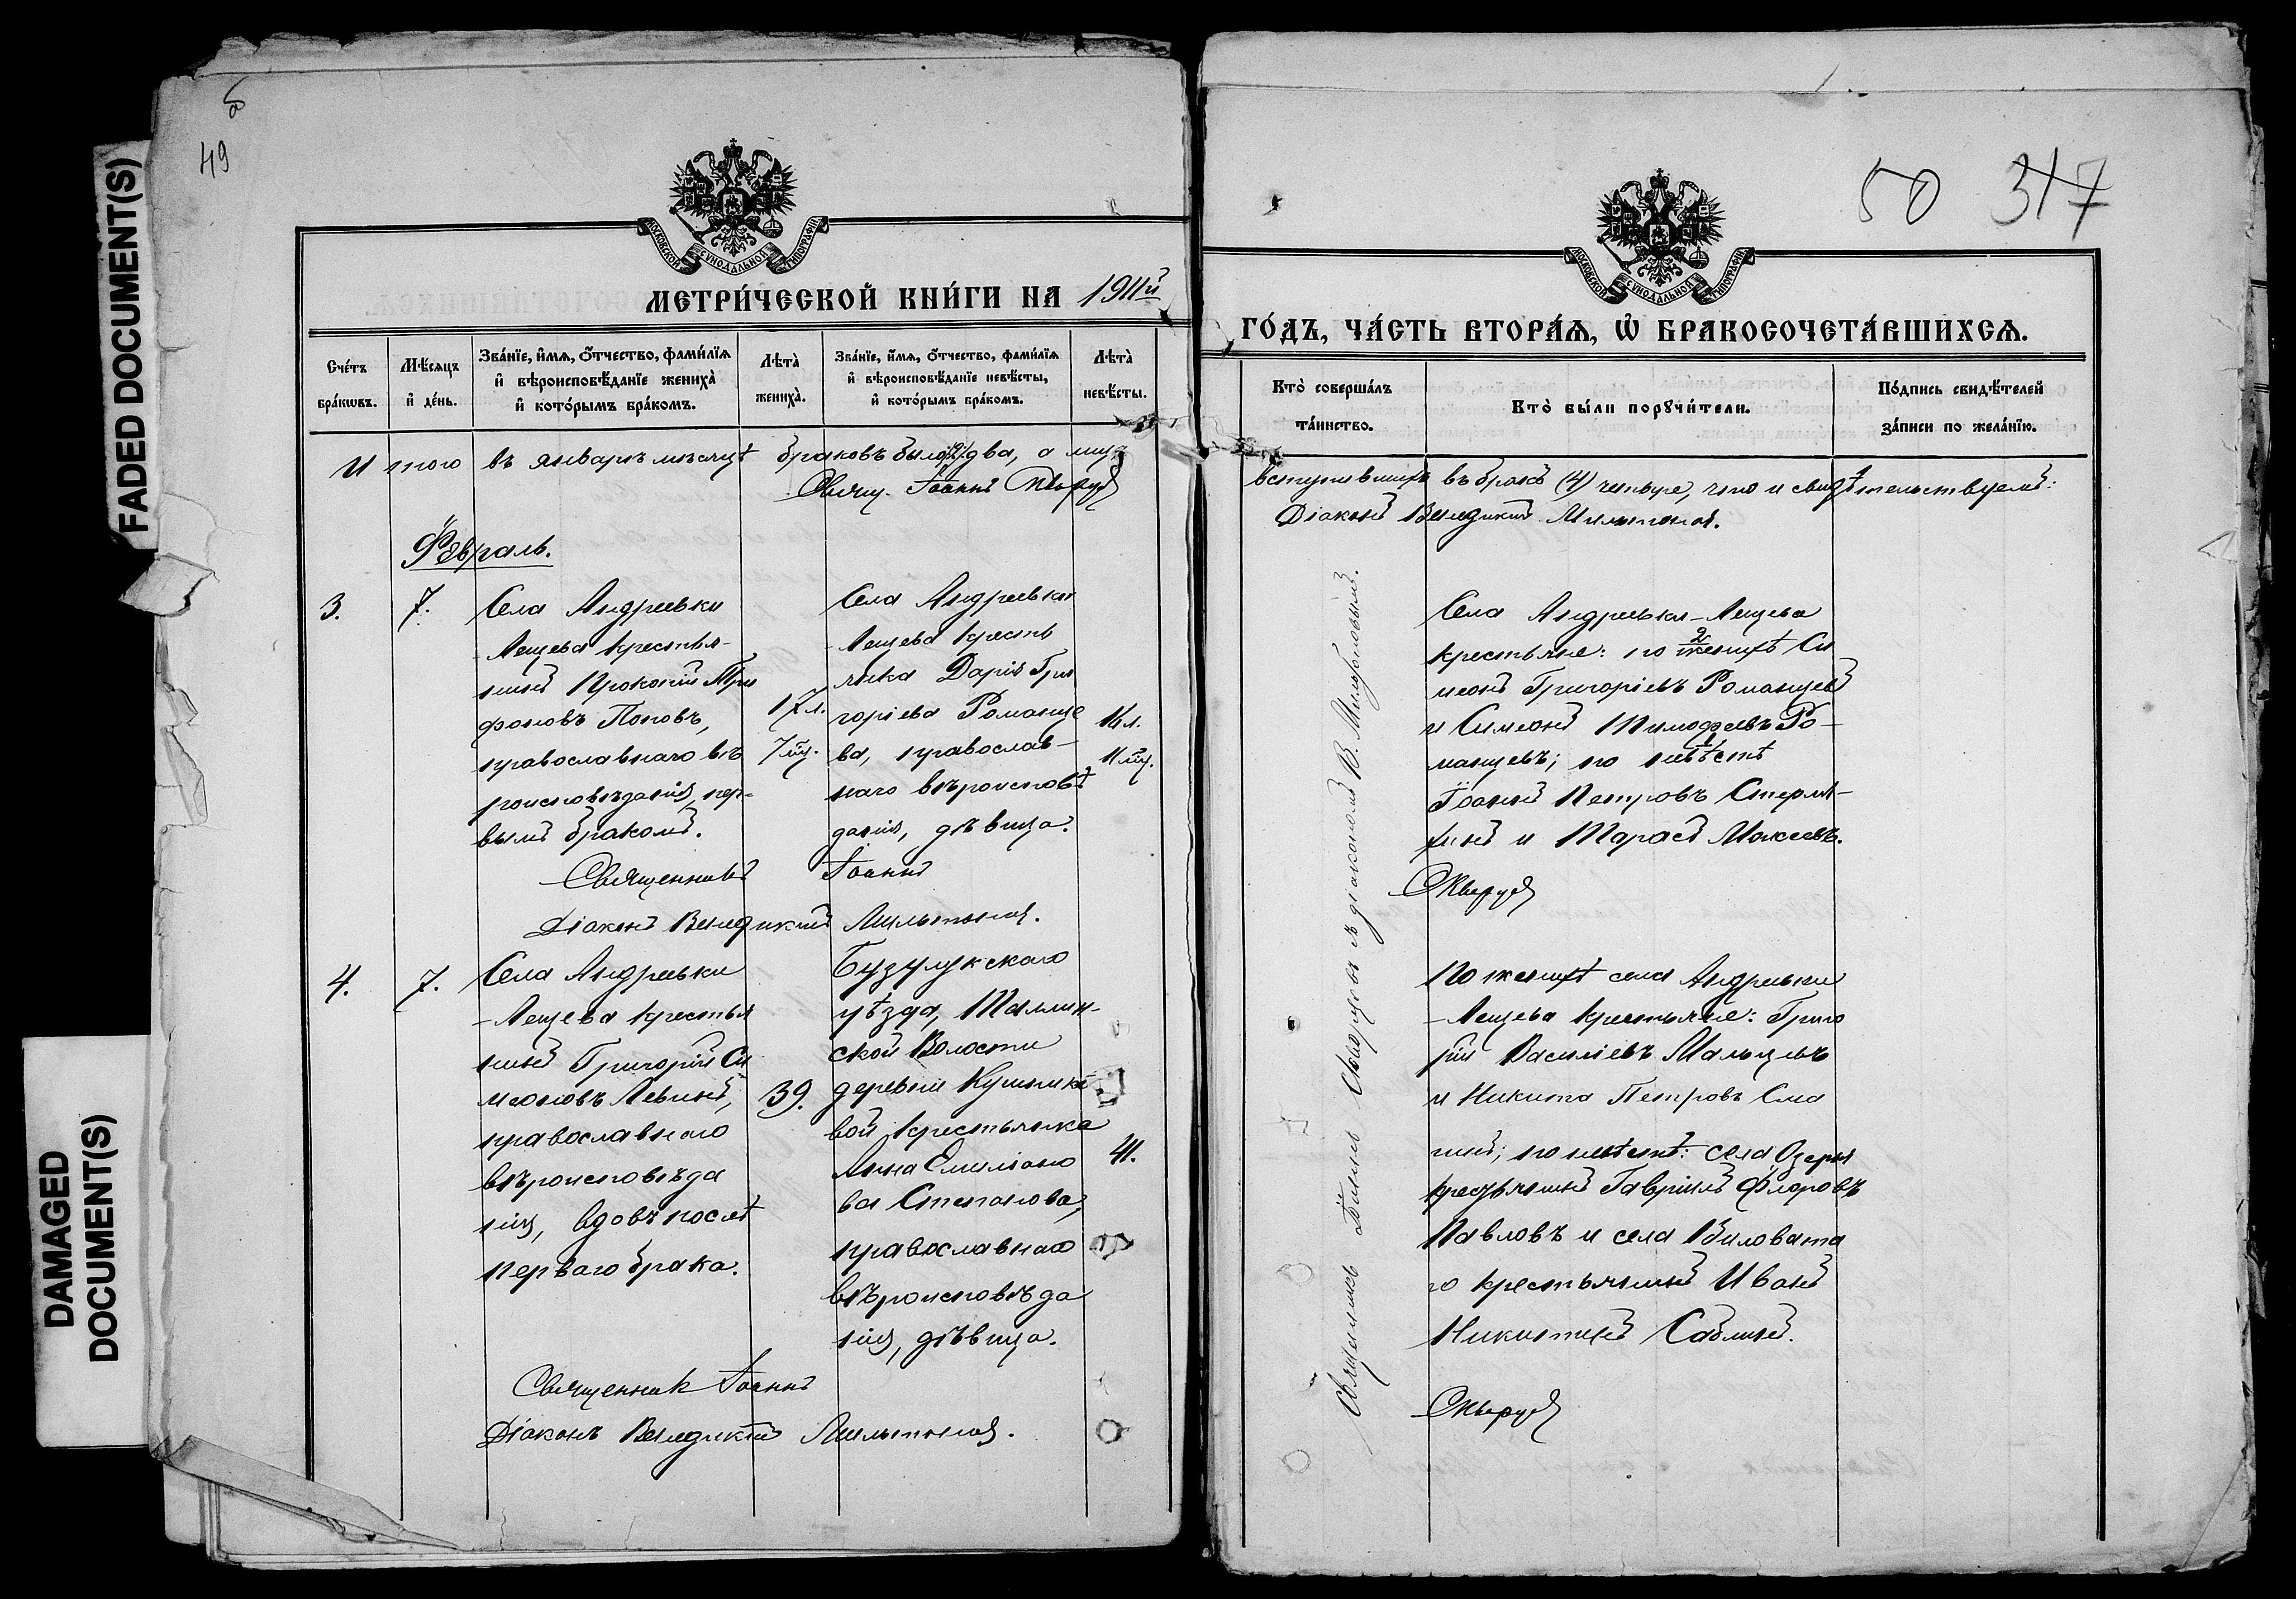 FADED DOCUMENT(S)
DAMAGED
DOCUMENT(S)
49
МОСКОВСКОЙ СѴНОДАЛЬНОЙ ТИПОГРАФІИ
МЕТРИ́ЧЕСКОЙ КНИ́ГИ НА 1911й
Сче́тъ бра́кѡвъ.
Мѣ́сяцъ и҆ де́нь.
Зва́нїе, и҆́мѧ, ѻ҆́тчество, фами́лїѧ
и҆ вѣроисповѣ́данїе жениха̀
и҆ кото́рымъ бра́комъ.
Лѣта̀ жениха̀.
Зва́нїе, и҆́мѧ, ѻ҆́тчество, фами́лїѧ
и҆ вѣроисповѣ́данїе невѣ́сты,
и҆ кото́рымъ бра́комъ.
Лѣта̀ невѣ́сты.
Итого въ январѣ мѣсяцѣ браковъ было (2) два, а лицъ
Свящ. Іоаннъ
Февраль.
3.
7.
Села Андреевки
-Лещева крестья-
нинъ Прокопій Три
фоновъ Поповъ,
православнаго вѣ
роисповѣданія, пер-
вымъ бракомъ.
17 л.
7 мц.
Села Андреевки
-Лещева кресть
янка Дарія Гри
горіева Романце
ва, православ-
наго вѣроисповѣ
данія, дѣвица.
16 л.
11 мц.
Священникъ Іоаннъ
Діаконъ Венедиктъ
4.
7.
Села Андреевки
-Лещева крестья
нинъ Григорій Си
меоновъ Левинъ,
православнаго
вѣроисповѣда
нія, вдовъ послѣ
перваго брака.
39.
Бузулукскаго
уѣзда,
ской Волости
деревни
вой крестьянка
Анна Емиліано
ва Степанова,
православнаго
вѣроисповѣда
нія, дѣвица.
41.
Священник Іоаннъ
Діаконъ Венедиктъ
50 317
МОСКОВСКОЙ СѴНОДАЛЬНОЙ ТИПОГРАФІИ
ГО́ДЪ, ЧА́СТЬ ВТОРА́Ѧ, Ѡ҆ БРАКОСОЧЕТА́ВШИХСѦ.
Кто̀ соверша́лъ
та́инство.
Кто̀ бы́ли порꙋчи́тели.
По́дпись свидѣ́телей
за́писи по жела́нїю.
вступившихъ въ бракъ (4) четыре, что и свидѣтельствуемъ:
Діаконъ Венедиктъ
Священникъ Іоаннъ съ діакономъ В.
Села Андреевки-Лещева
крестьяне: по 2 женихѣ Си
меонъ Григоріевъ Романцевъ
и Симеонъ Тимофеевъ Ро-
манцевъ; по 1 невѣстѣ
Іоаннъ Петровъ
и Тарасъ Мокеевъ.
По женихѣ села Андреевки
-Лещева крестьяне: Григо
рій Василіевъ Мальцевъ
и Никита Петровъ
по невѣстѣ: села
крестьянинъ Гавріилъ Флоровъ
Павловъ и села Виловата
го крестьянинъ Иванъ
Никитинъ Саблинъ.